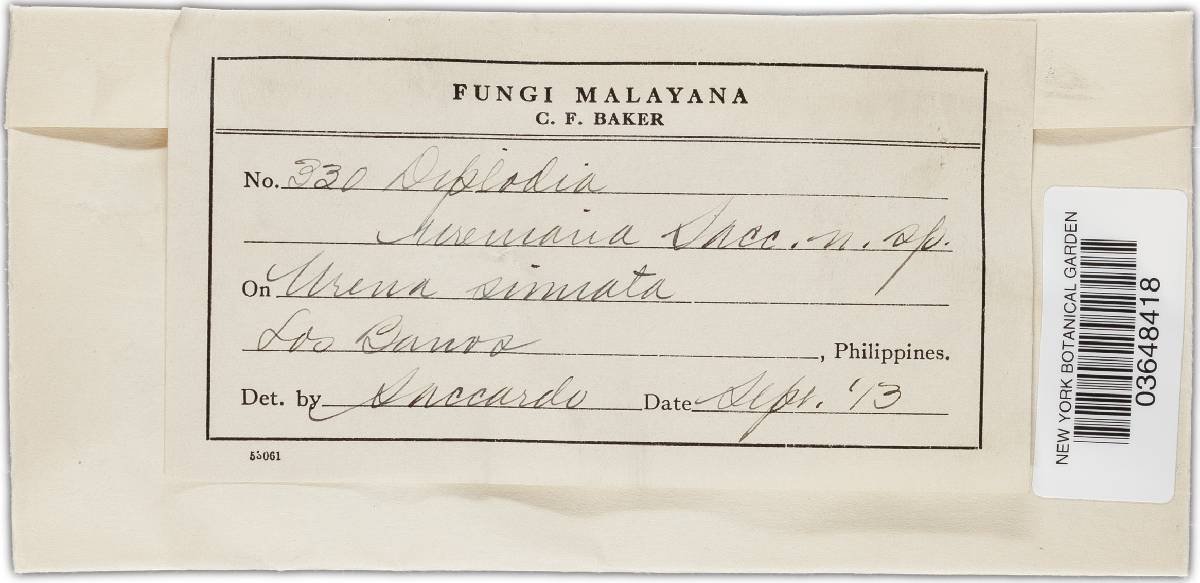 FUNGI MALAYANA
C. F. BAKER
No. 330 Diplodia
Sacc. n. sp.
On Urena sinuata
Los Banos, Philippines.
Det. by Saccardo Date Sept. '13
55061
NEW YORK BOTANICAL GARDEN
03648418